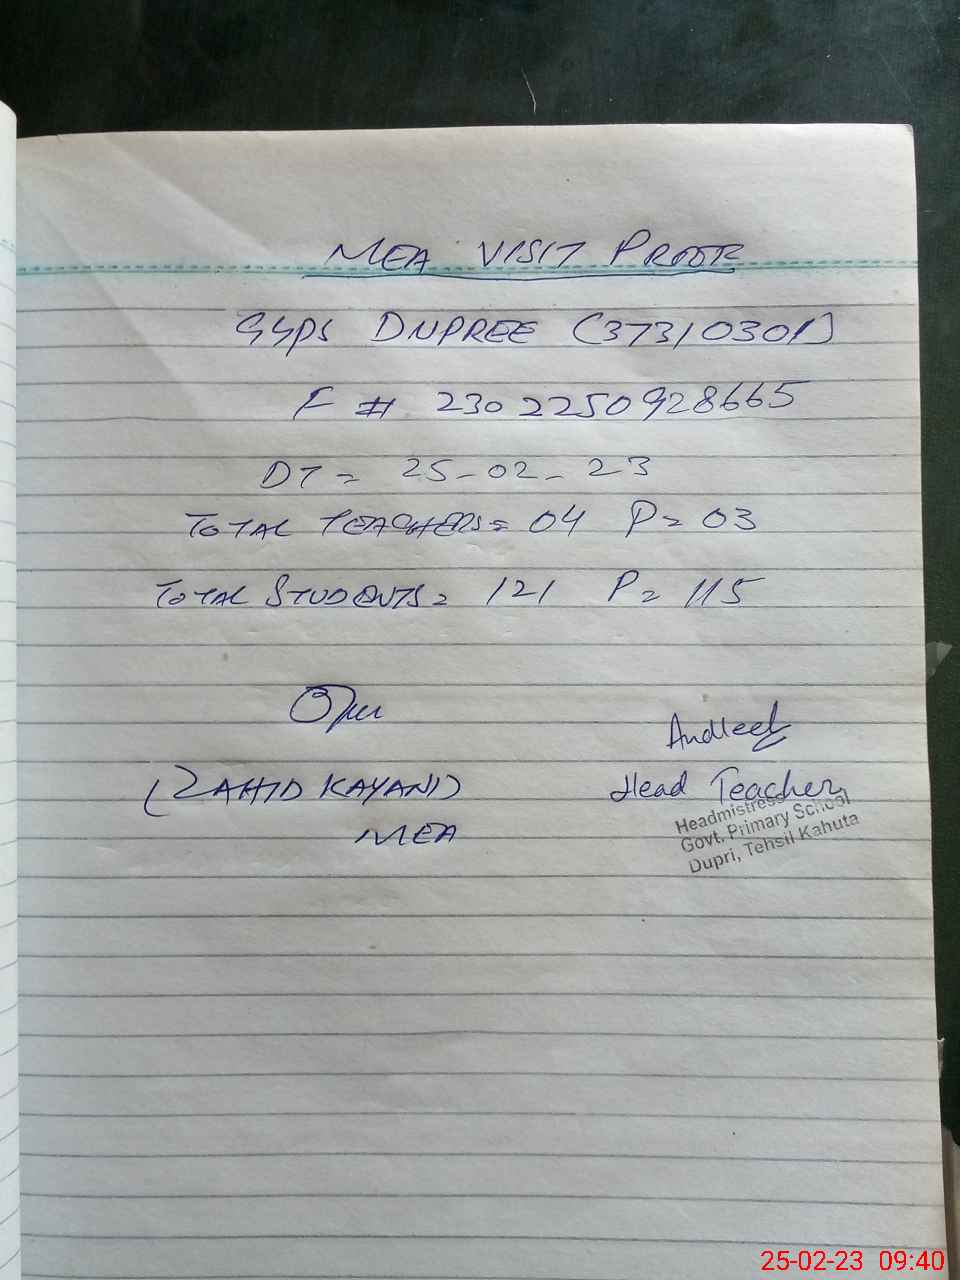 MEA VISIT PROOF
GGPS DUPREE (37310301)
F # 2302250928665
DT = 25-02-23
TOTAL TEACHERS = 04 P = 03
TOTAL STUDENTS = 121 P = 115
Andleeb
(ZAHID KAYANI) Head Teacher
MEA
Headmistress
Govt. Primary School
Dupri, Tehsil Kahuta
25-02-23 09:40